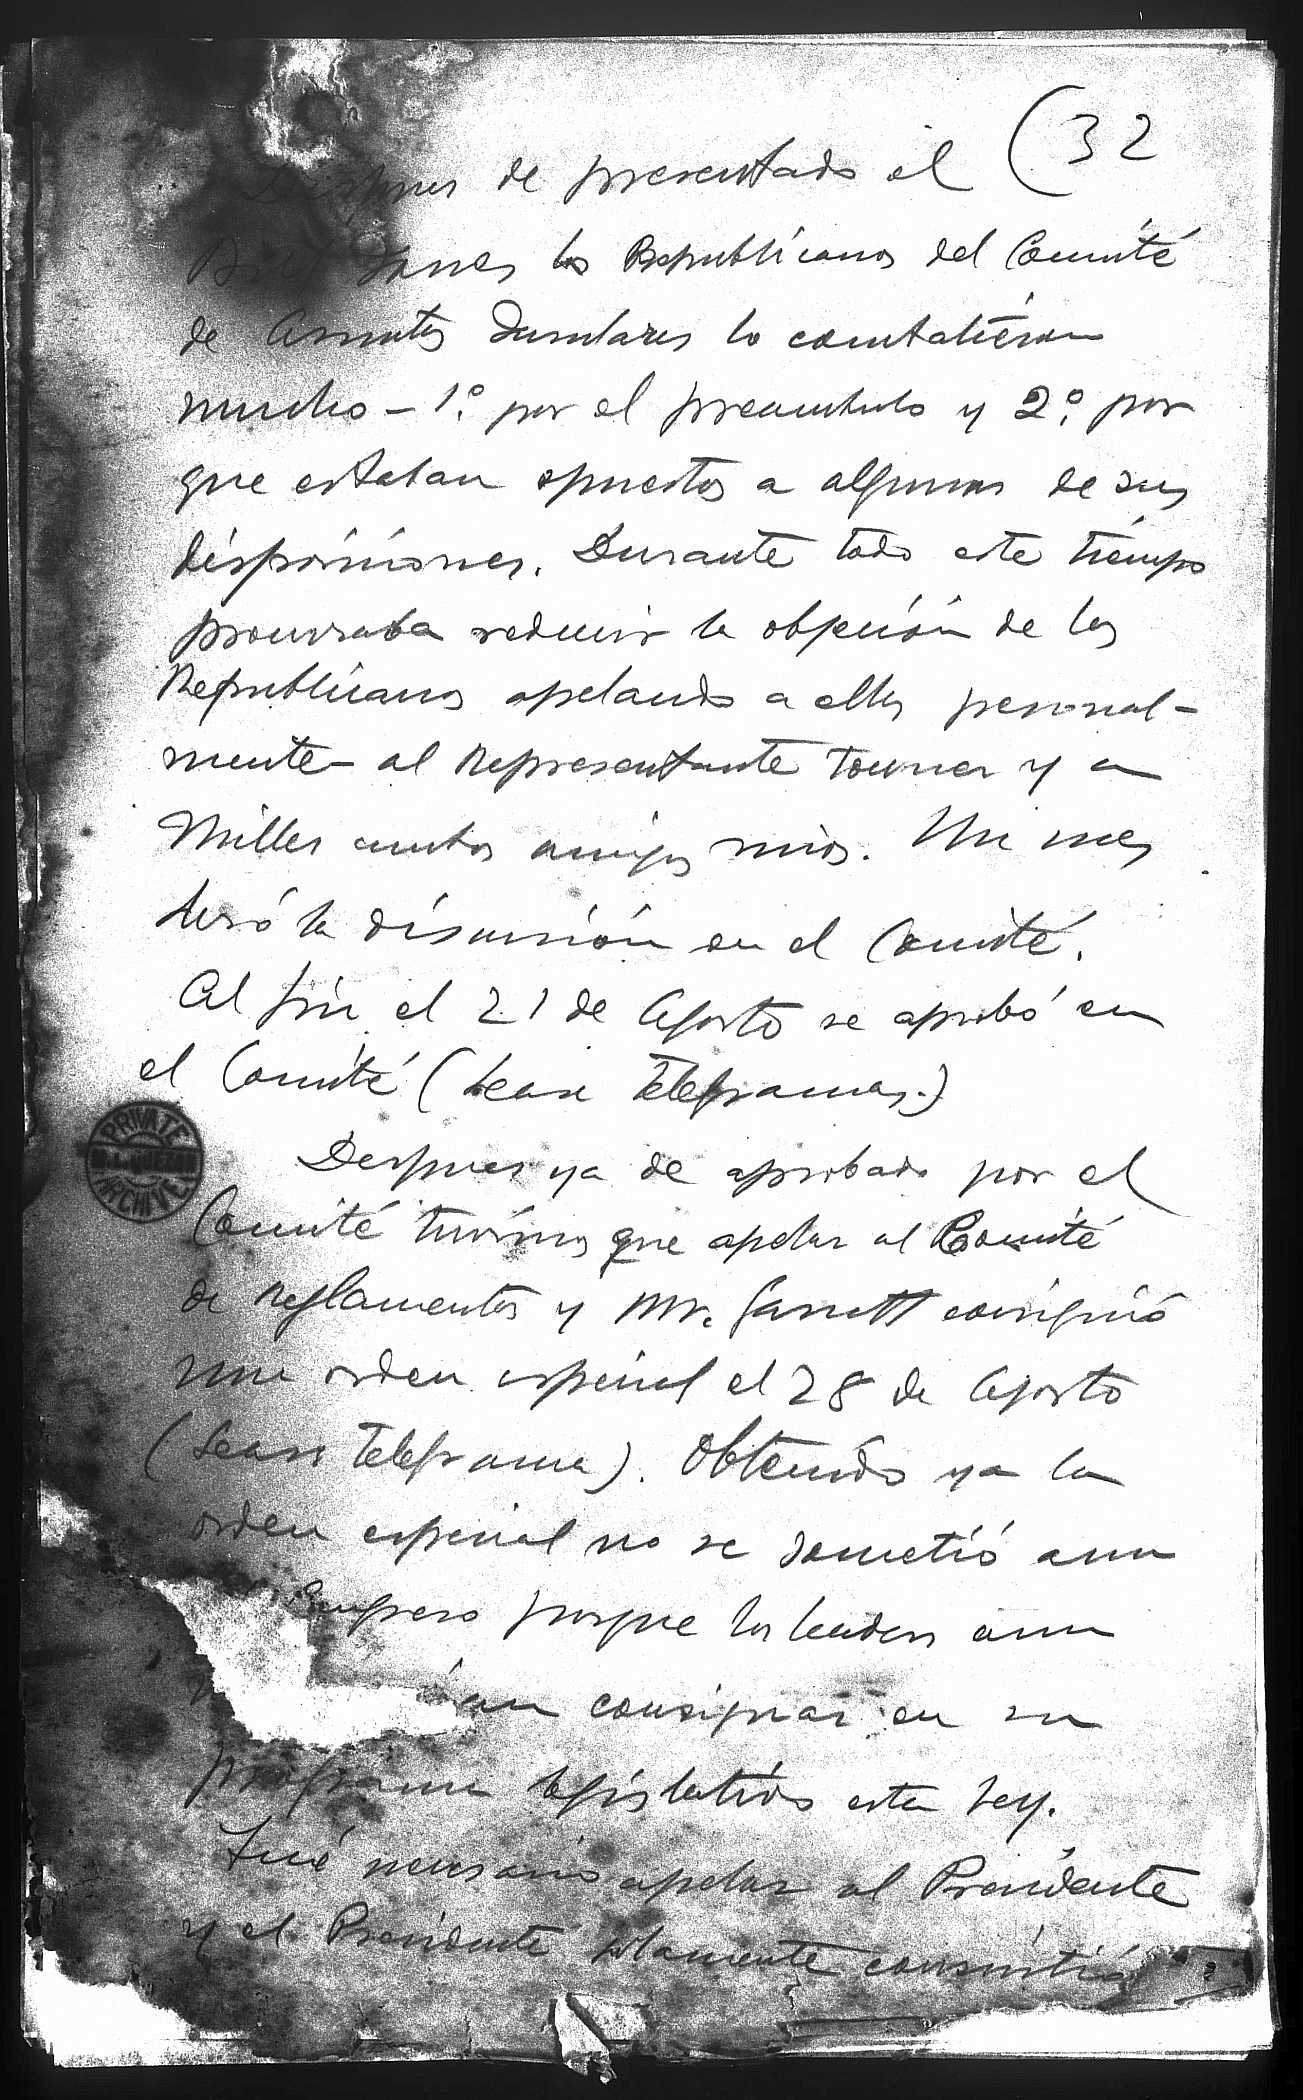 (32
Despues de presentado el
Bill Jones los Republicanos del Comité
de Asuntos Insulares lo combatieron
mucho - 1.º por el preambulo y 2.º por
que estaban opuestos a algunas de sus
disposiciones. Durante todo este tiempo
procuraba reducir la objeción de los
Republicanos apelando a ellos personal-
mente - al Representante Towner y a
Miller ambos amigos mios. Un mes
duró la discusión en el Comité.
Al fin el 21 de Agosto se aprobó en
el Comité (Lease Telegramas.)
Despues ya de aprobado por el
PRIVATE
M.L. QUEZON
ARCHIVE
Comité tuvimos que apelar al Comité
de Reglamentos y Mr. Garrett consiguió
una orden especial el 28 de Agosto
(Lease Telegrama). Obtenido ya la
orden especial no se sometió aun
Congreso porque los leaders aun
an consignar en su
programa legislativo esta ley.
Fué necesario apelar al Presidente
y el Presidente solamente consintió